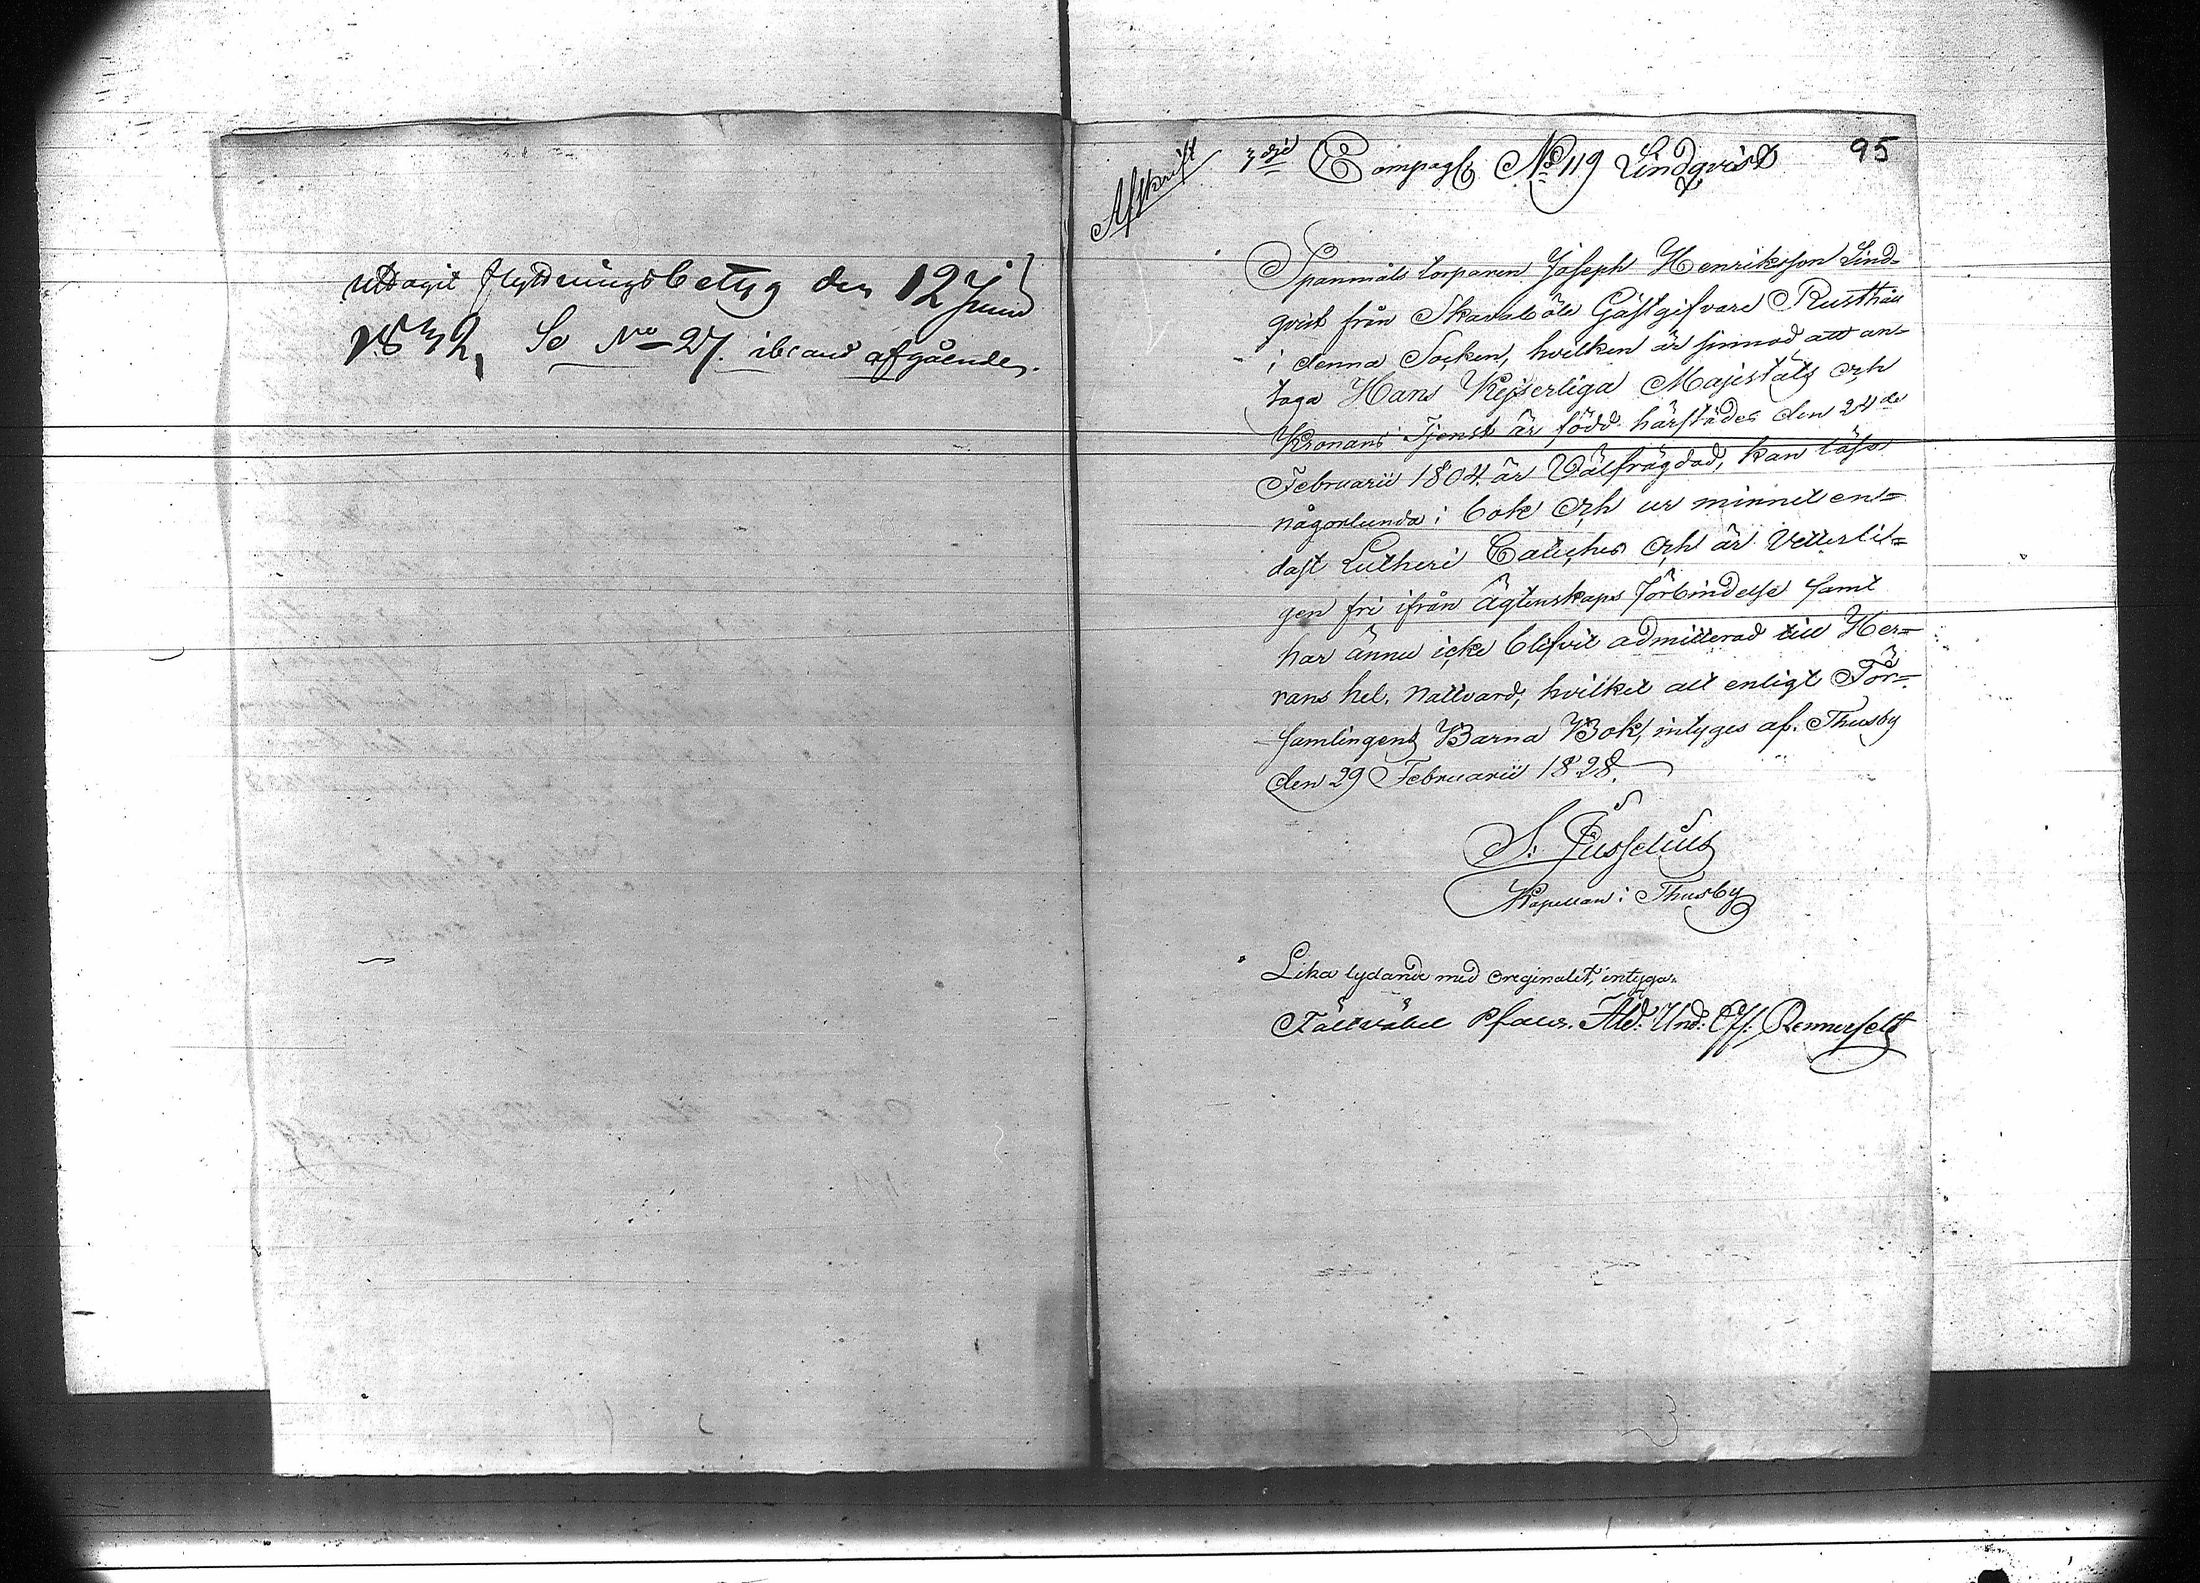 uttagit flyttningsbetyg den 12 Junii
1832, Se No 27. ibland afgående.
Afskrift
3dje Compagt No 119 Lindqvist
95
Spanmåls torparen Joseph Henriksson Lind-
qvist från Skavaböle Gästgifvare Rusthåll
i denna Socken, hvilken är sinnad att an-
taga Hans Kejserliga Majestäts och
Kronans Tjenst är född härstädes den 24de
Februarii 1804. är Välfrägdad, kan läsa
någorlunda i bok och ur minnet en=
dast Lutheri Catiches och är Vetterli=
gen fri ifrån Ägtenskaps förbindelse samt
har ännu icke blifvit admitterad till Her=
rans hel. Nattvard, hvilket alt enligt För=
samlingens Barna Bok, intyges af. Thusby
den 29 Februarii 1828.
Kapellan i Thusby
Lika lydande med originalet, intyga.
Fältväbel Und: Off: